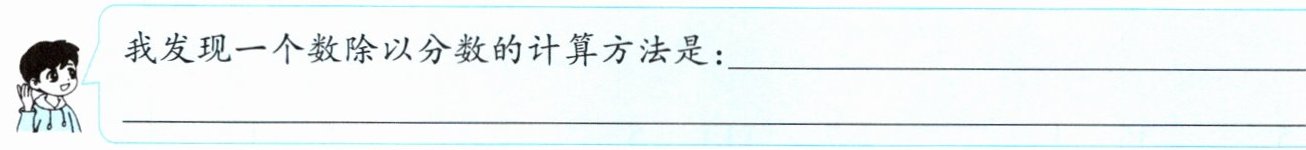 我发现一个数除以分数的计算方法是：